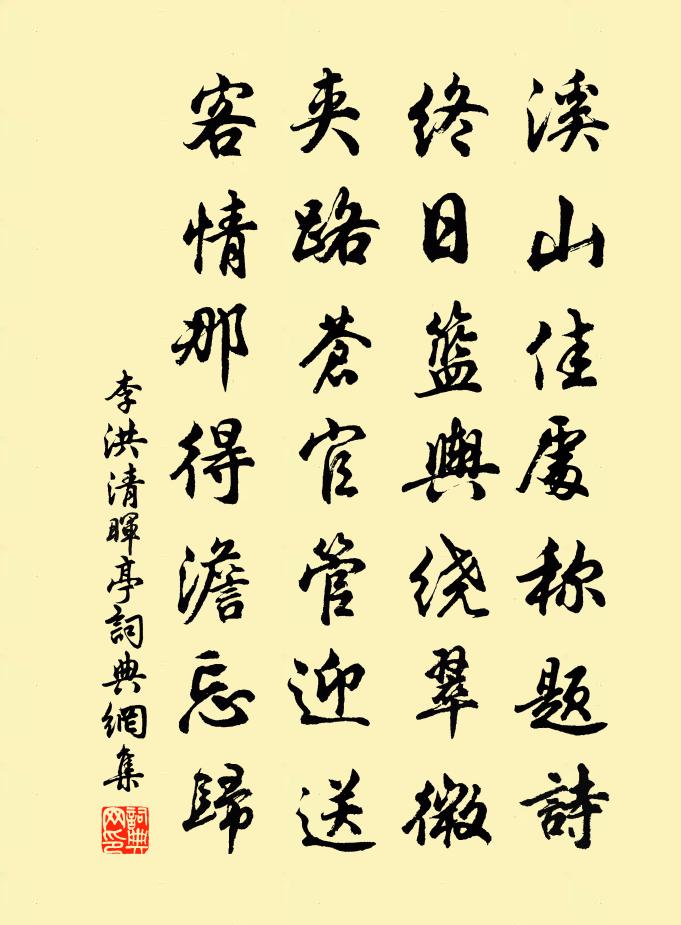 溪山佳處称题詩
终日籃輿绕翠微
夹路蒼官管迎送
客情那得澹忘歸
李洪清暉亭詞典網集
詞典网印